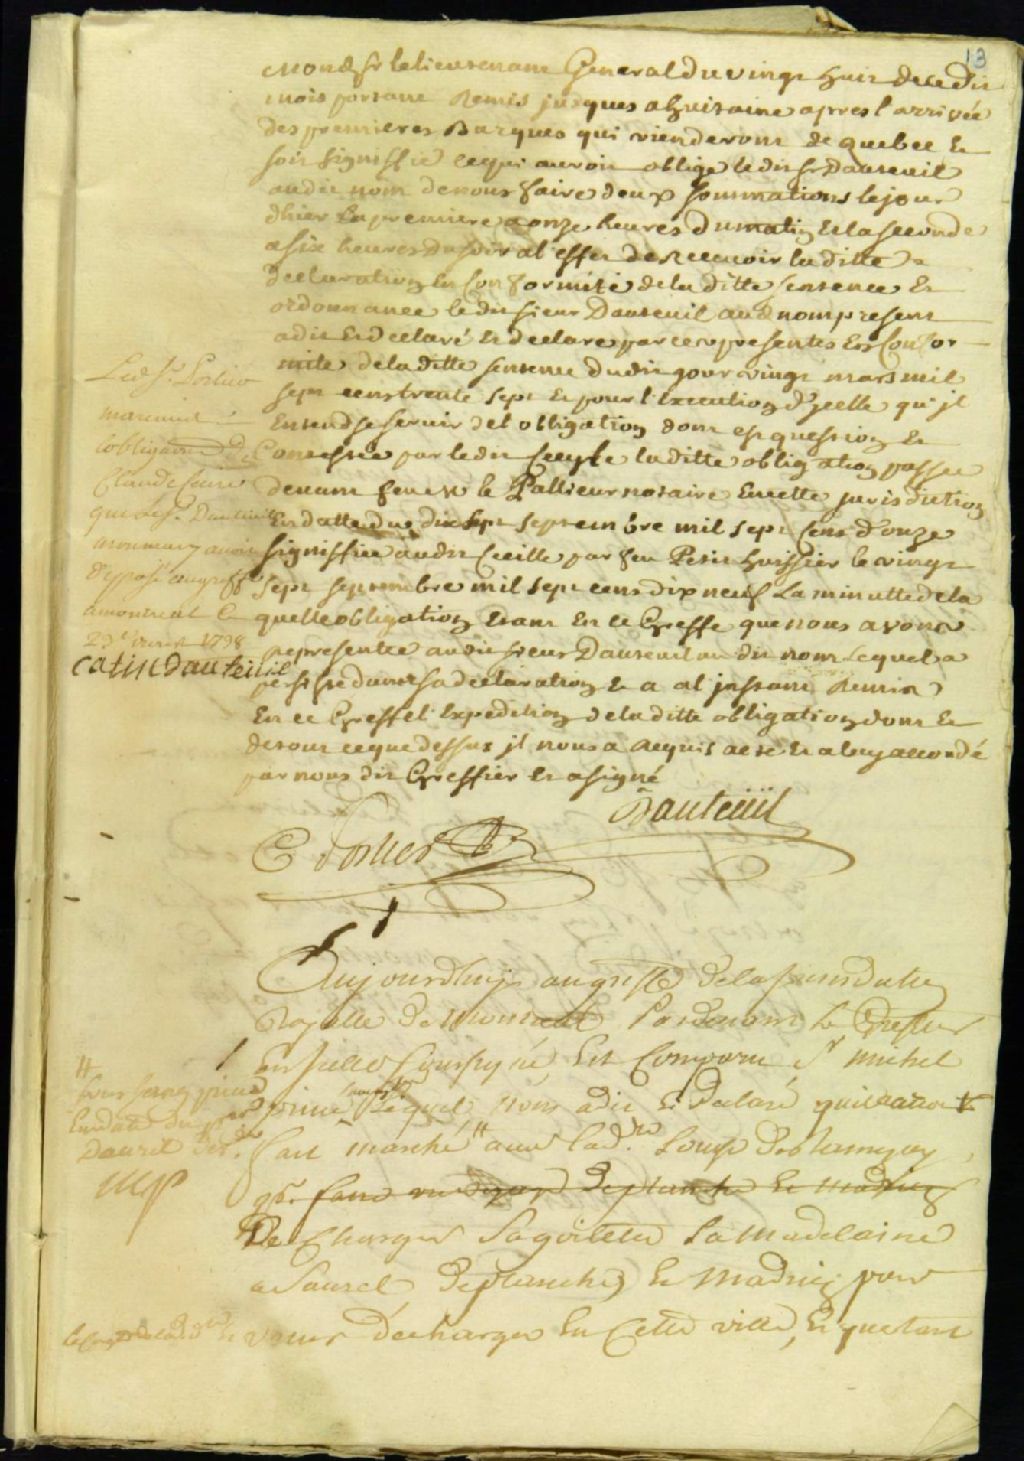 13
Mond. Sr le lieutenant General du vingt huit de ce dit
mois portant Remis jusques a huitaine apres l'arrivée
des premieres Barques qui vienderont de quebec et
soit signiffié ce qui auroit obligé le dit Sr Dauteuil
au dit nom de nous faire deux sommations le jour
dhier la premiere a onze heures du matin et la seconde
a six heures du soir a l'effet de Recevoir la ditte
declaration En Conformité de la ditte sentence et
ordonnance le dit sieur Dauteuil aud nom present
a dit et declaré et declare par ces presentes En Confor
mité de la ditte sentence du dit jour vingt mars mil
sept cens trente sept et pour l'Execution d'ycelle qu'il
Entend se servir de l'obligation dont est question et
Contestée par le dit la ditte obligation passée
devant feu Me le Pallieur notaire En cette jurisdiction
En datte du dix sept septembre mil sept cens d'onze
signiffiée au dit par feu Petit huissier le vingt
sept septembre mil sept cens dix neuf La minutte de la
quelle obligation Etant En ce Greffe que nous avons
representée au dit sieur Dauteuil au dit nom Lequel a
persisté dans sa declaration et a a l'instant Remis
En ce Greffe l'Expedition de la ditte obligation dont et
de tout ce que dessus jl nous a Requis acte et a luy accordé
par nous dit Greffier et a signé
Dauteüil
C Porlier
Led. Sr Porlier
maremis
l'obligation de
Claude
que le Sr Dauteuil
avoit
d'epposé au greffe
a montreal le
23e avril 1738
catin dauteuil
Aujourd'huy au greffe de la Jurisdiction
Royalle de Montreal Pardevant le Greffier
En Icelle soussigné, Est Comparu Sr michel
Lequel Nous a dit et Declaré quil auroit
fait marché avec lad. Dlle Louise De Ramezay
faire de planches et Madriers
De Charger sa goilette La Madelaine
a Saurel, de planches et Madriers pour
venir décharger En Cette ville, et quetant
sous seing privé
En datte du
Davril der
MP